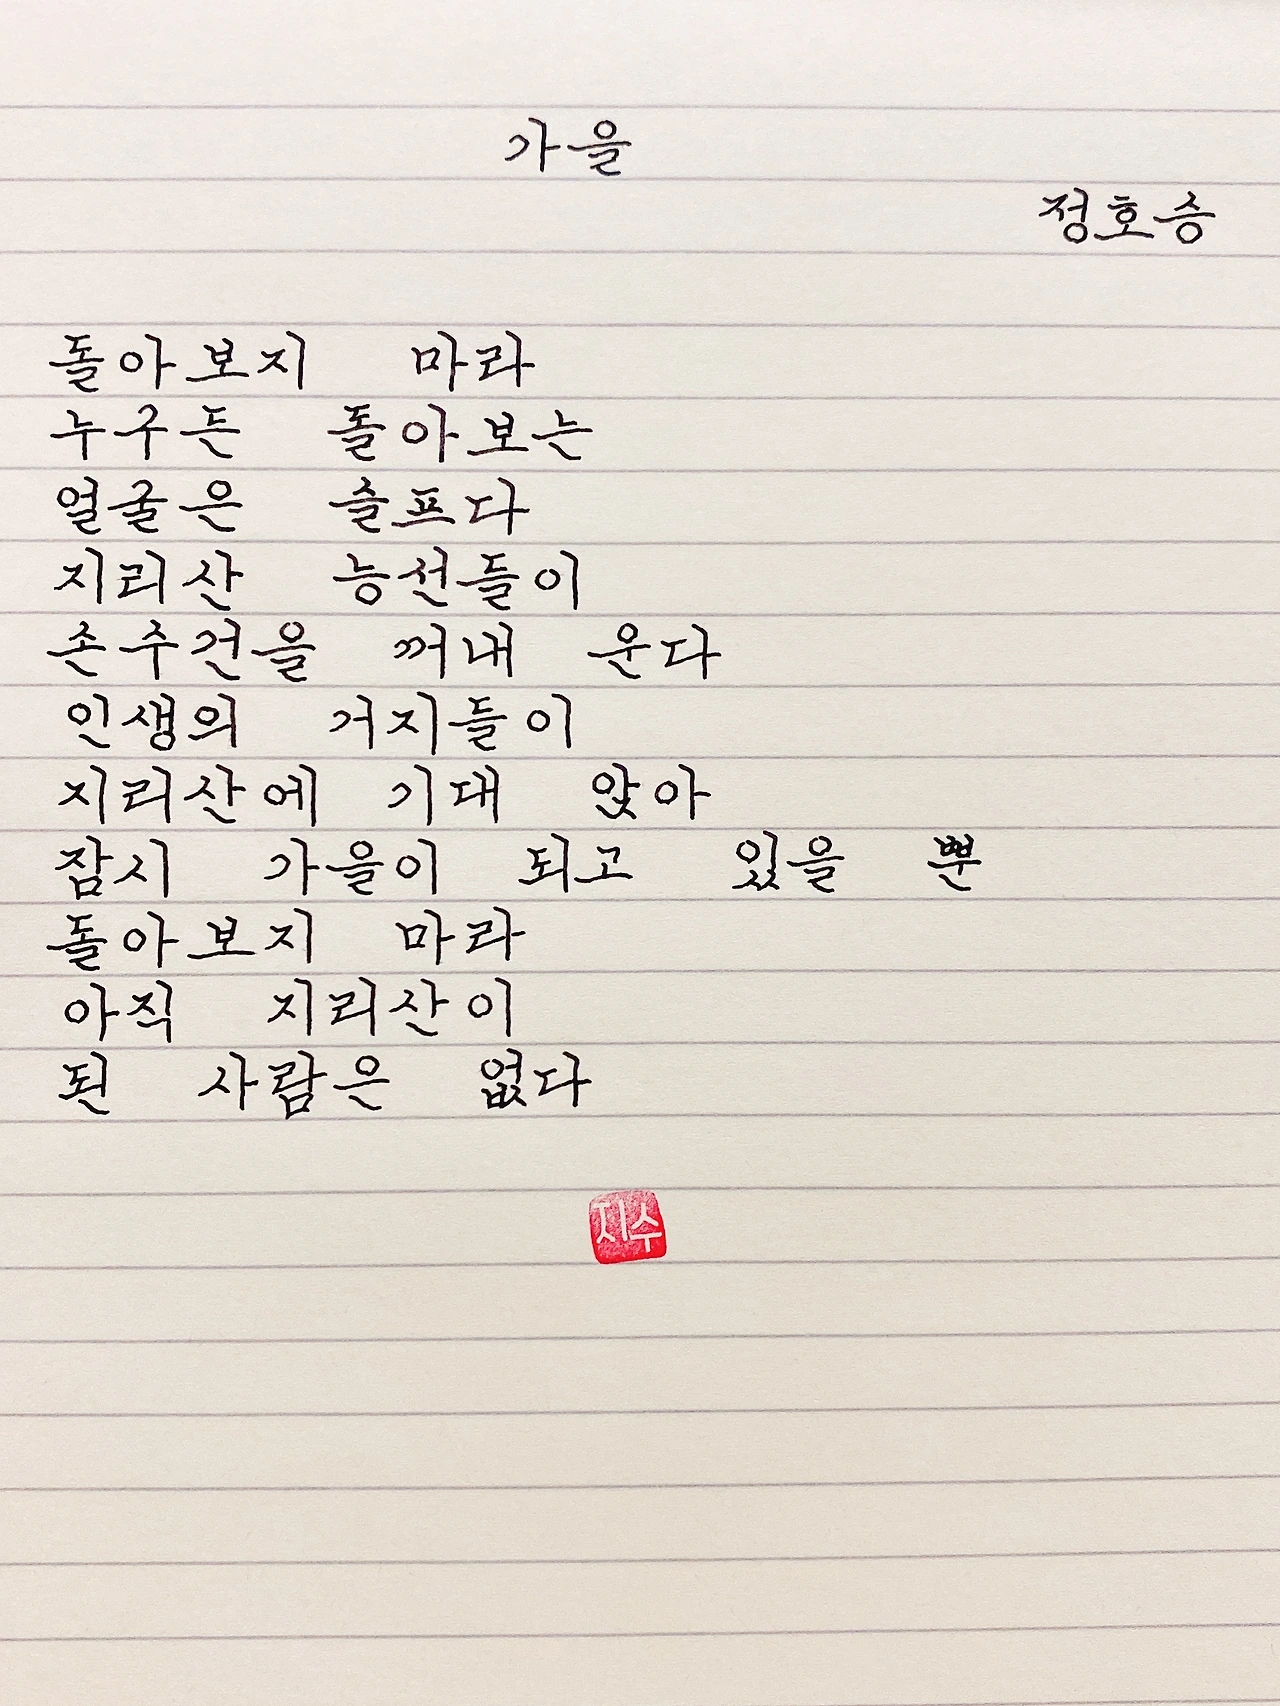 가을
정호승
돌아보지 마라
누구든 돌아보는
얼굴은 슬프다
지리산 능선들이
손수건을 꺼내 운다
인생의 거지들이
지리산에 기대 앉아
잠시 가을이 되고 있을 뿐
돌아보지 마라
아직 지리산이
된 사람은 없다
지수